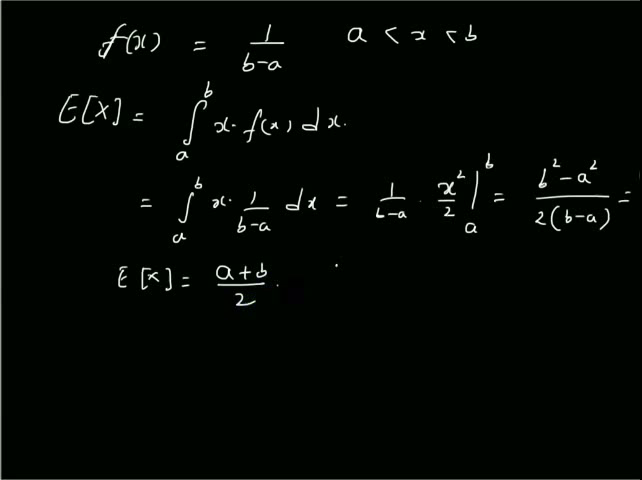 f(x) = 1/(b-a) a < x < b
E[X] = ∫_a^b x. f(x) dx.
= ∫_a^b x. 1/(b-a) dx = 1/(b-a) . x²/2 |_a^b = (b² - a²)/(2(b-a)) =
E[x] = (a+b)/2 .